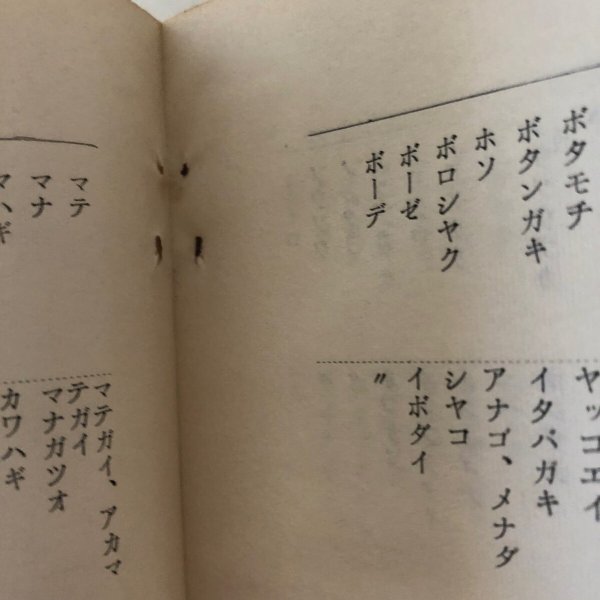 ボタモチ
ヤッコエイ
ボタンガキ
イタバガキ
ホソ
アナゴ、メナダ
ボロシヤク
シヤコ
ボーゼ
イボダイ
ボーデ
〃
マテ
マテガイ、アカマ
テガイ
マナ
マナガツオ
マハギ
カワハギ